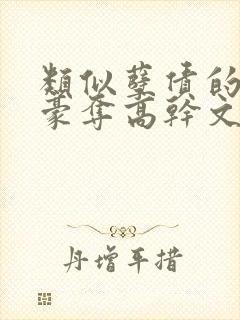 類似孽债的
豪奪高幹文
丹增平措